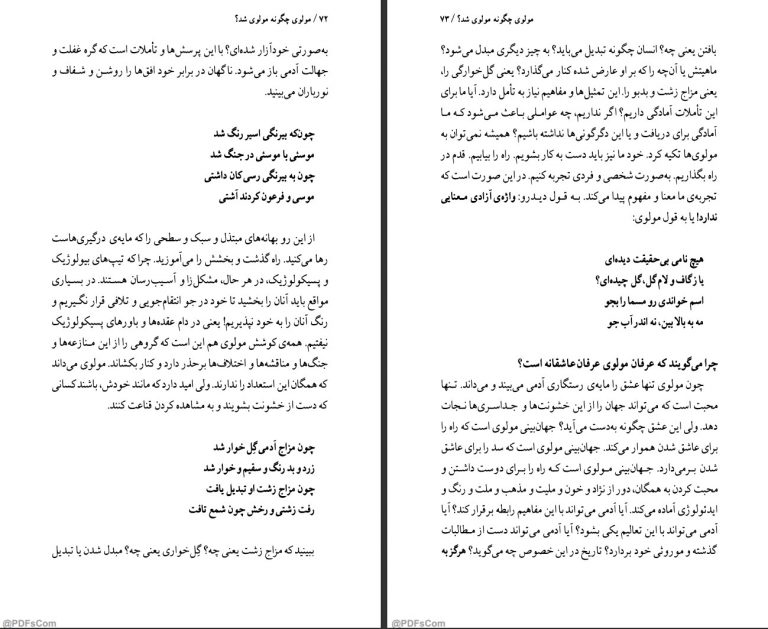 ۷۲ / مولوی چگونه مولوی شد؟
به‌صورتی خودآزار شده‌ای؟ با این پرسش‌ها و تأملات است که گره غفلت و
جهالت آدمی باز می‌شود. ناگهان در برابر خود افق‌ها را روشن و شفاف و
نورباران می‌بینید.
چون‌که بیرنگی اسیر رنگ شد
موسئی با موسئی در جنگ شد
چون به بیرنگی رسی کان داشتی
موسی و فرعون کردند آشتی
از این رو بهانه‌های مبتذل و سبک و سطحی را که مایه‌ی درگیری‌هاست
رها می‌کنید. راه گذشت و بخشش را می‌آموزید. چرا که تیپ‌های بیولوژیک
و پسیکولوژیک، در هر حال، مشکل‌زا و آسیب‌رسان هستند. در بسیاری
مواقع باید آنان را بخشید تا خود در جو انتقام‌جویی و تلافی قرار نگیریم و
رنگ آنان را به خود نپذیریم! یعنی در دام عقده‌ها و باورهای پسیکولوژیک
نیفتیم. همه‌ی کوشش مولوی هم این است که گروهی را از این منازعه‌ها و
جنگ‌ها و مناقشه‌ها و اختلاف‌ها برحذر دارد و کنار بکشاند. مولوی می‌داند
که همگان این استعداد را ندارند. ولی امید دارد که مانند خودش، باشند کسانی
که دست از خشونت بشویند و به مشاهده کردن قناعت کنند.
چون مزاج آدمی گِل خوار شد
زرد و بد رنگ و سقیم و خوار شد
چون مزاج زشت او تبدیل یافت
رفت زشتی و رخش چون شمع تافت
ببینید که مزاج زشت یعنی چه؟ گِل‌خواری یعنی چه؟ مبدل شدن یا تبدیل
مولوی چگونه مولوی شد؟ / ۷۳
یافتن یعنی چه؟ انسان چگونه تبدیل می‌یابد؟ به چیز دیگری مبدل می‌شود؟
ماهیتش یا آن‌چه را که بر او عارض شده کنار می‌گذارد؟ یعنی گل‌خوارگی را،
یعنی مزاج زشت و بدبو را. این تمثیل‌ها و مفاهیم نیاز به تأمل دارد. آیا ما برای
این تأملات آمادگی داریم؟ اگر نداریم، چه عواملی باعث می‌شود که ما
آمادگی برای دریافت و یا این دگرگونی‌ها نداشته باشیم؟ همیشه نمی‌توان به
مولوی‌ها تکیه کرد. خود ما نیز باید دست به کار بشویم. راه را بیابیم. قدم در
راه بگذاریم. به‌صورت شخصی و فردی تجربه کنیم. در این صورت است که
تجربه‌ی ما معنا و مفهوم پیدا می‌کند. به قول دیدرو: واژه‌ی آزادی معنایی
ندارد! یا به قول مولوی:
هیچ نامی بی‌حقیقت دیده‌ای
یا ز گاف و لام گل، گل چیده‌ای؟
اسم خواندی رو مسما را بجو
مه به بالا بین، نه اندر آب جو
چرا می‌گویند که عرفان مولوی عرفان عاشقانه است؟
چون مولوی تنها عشق را مایه‌ی رستگاری آدمی می‌بیند و می‌داند. تنها
محبت است که می‌تواند جهان را از این خشونت‌ها و جداسری‌ها نجات
دهد. ولی این عشق چگونه به‌دست می‌آید؟ جهان‌بینی مولوی است که راه را
برای عاشق شدن هموار می‌کند. جهان‌بینی مولوی است که سد را برای عاشق
شدن برمی‌دارد. جهان‌بینی مولوی است که راه را برای دوست داشتن و
محبت کردن به همگان، دور از نژاد و خون و ملیت و مذهب و ملت و رنگ و
ایدئولوژی آماده می‌کند. آیا آدمی می‌تواند با این مفاهیم رابطه برقرار کند؟ آیا
آدمی می‌تواند با این تعالیم یکی بشود؟ آیا آدمی می‌تواند دست از مطالبات
گذشته و موروثی خود بردارد؟ تاریخ در این خصوص چه می‌گوید؟ هرگز به
@PDFsCom
@PDFsCom